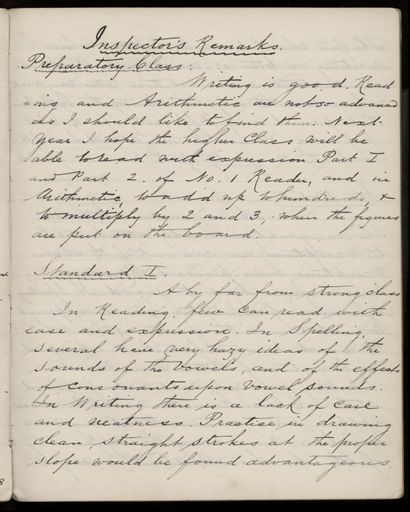 Inspector's Remarks.
Preparatory Class:
Writing is good. Read
ing and Arithmetic are not so advanced
as I should like to find them. Next
year I hope the higher Class will be
able to read with expression Part I
and Part 2. of No. 1 Reader, and in
Arithmetic, to add up to hundreds, &
to multiply by 2 and 3, when the figures
are put on the board.
Standard I.
A by far from strong class
In Reading few can read with
ease and expression. In Spelling,
several have very hazy ideas of the
sounds of the vowels, and of the effects
of consonants upon vowel sounds.
In Writing there is a lack of care
and neatness. Practise in drawing
clean, straight strokes at the proper
slope would be found advantageous